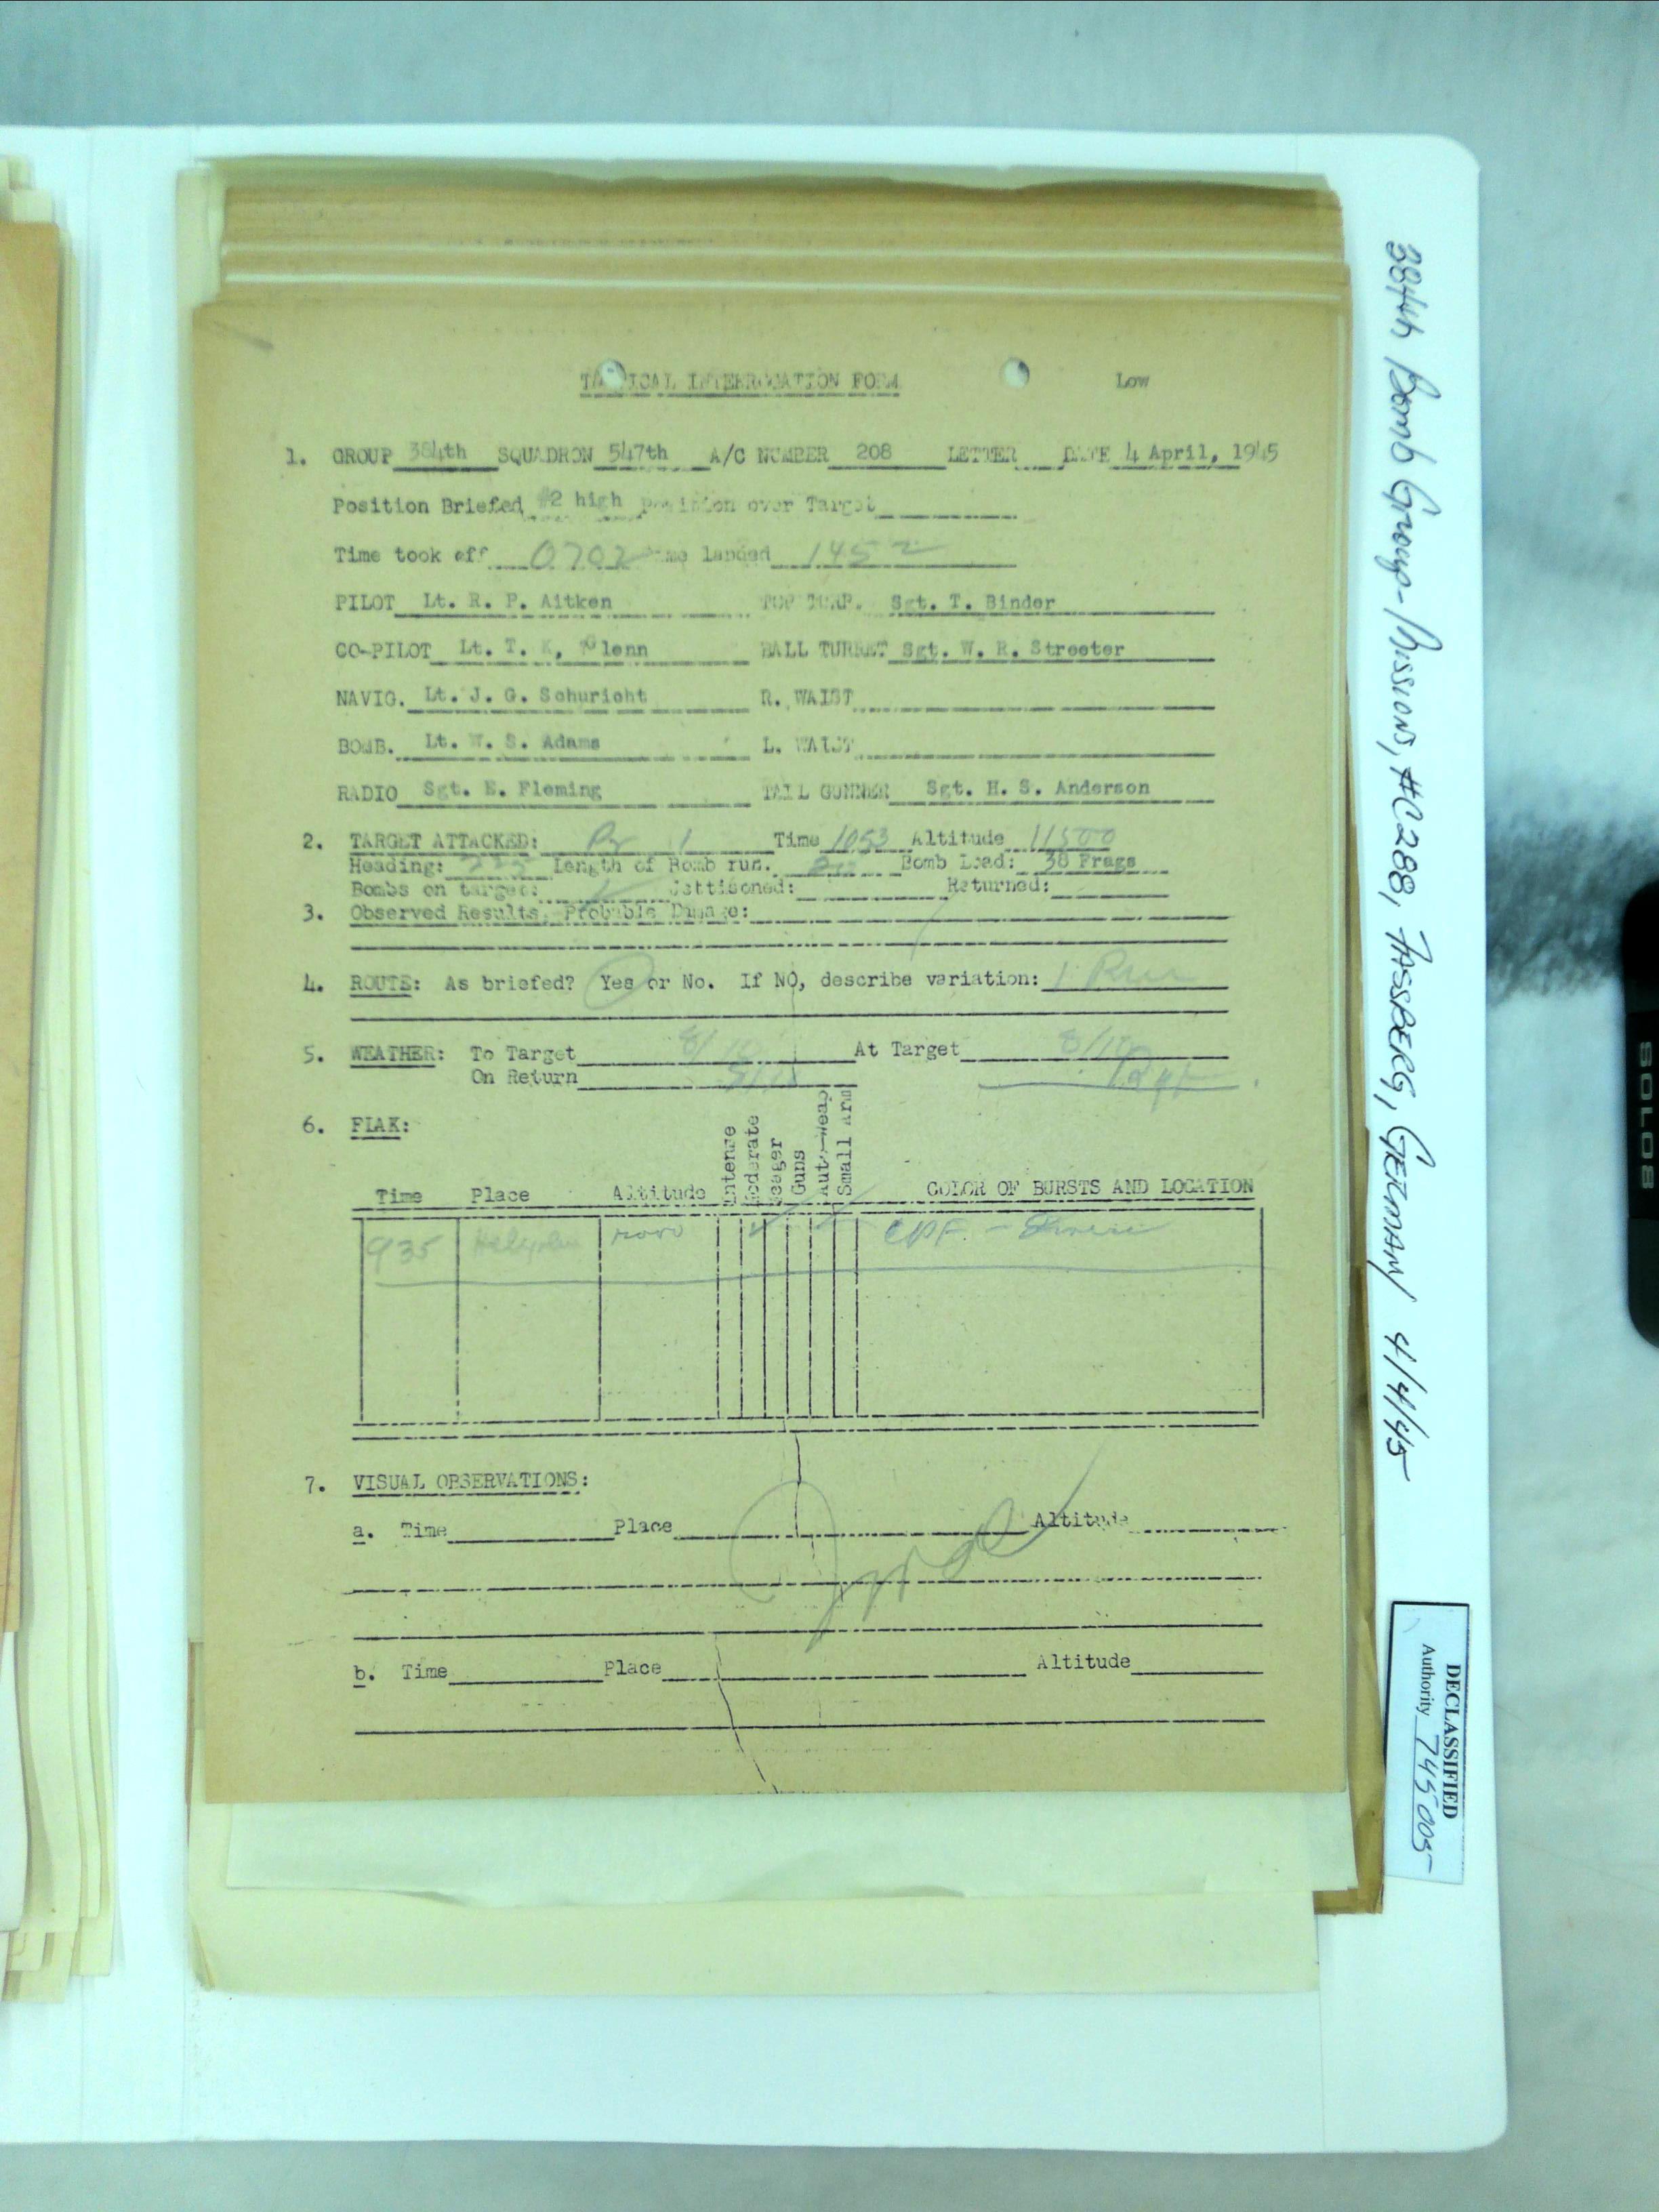 TACTICAL INTERROGATION FORM Low
1. GROUP 384th SQUADRON 547th A/C NUMBER 208 LETTER DATE 4 April, 1945
Position Briefed #2 high Position over Target
Time took off 0702 Time landed 1452
PILOT Lt. R. P. Aitken TOP TURR. Sgt. T. Binder
CO-PILOT Lt. T. K. Glenn BALL TURRET Sgt. W. R. Streeter
NAVIG. Lt. J. G. Schuricht R. WAIST
BOMB. Lt. W. S. Adams L. WAIST
RADIO Sgt. E. Fleming TAIL GUNNER Sgt. H. S. Anderson
2. TARGET ATTACKED: 1 Time 1053 Altitude 11500
Heading: Length of Bomb run. Bomb Load: 38 Frags
Bombs on target: Jettisoned: Returned:
3. Observed Results, Probable Damage:
4. ROUTE: As briefed? Yes or No. If NO, describe variation: 1 Run
5. WEATHER: To Target 8/10 At Target 8/10
On Return
6. FLAK:
Time Place Altitude Intense Moderate Meager Guns Auto-Weap Small Arm COLOR OF BURSTS AND LOCATION
935 CPF -
7. VISUAL OBSERVATIONS:
a. Time Place Altitude
b. Time Place Altitude
384th Bomb Group-Missions, #C288, FASSBERG, GERMANY 4/4/45
DECLASSIFIED
Authority 745005
SOLO8